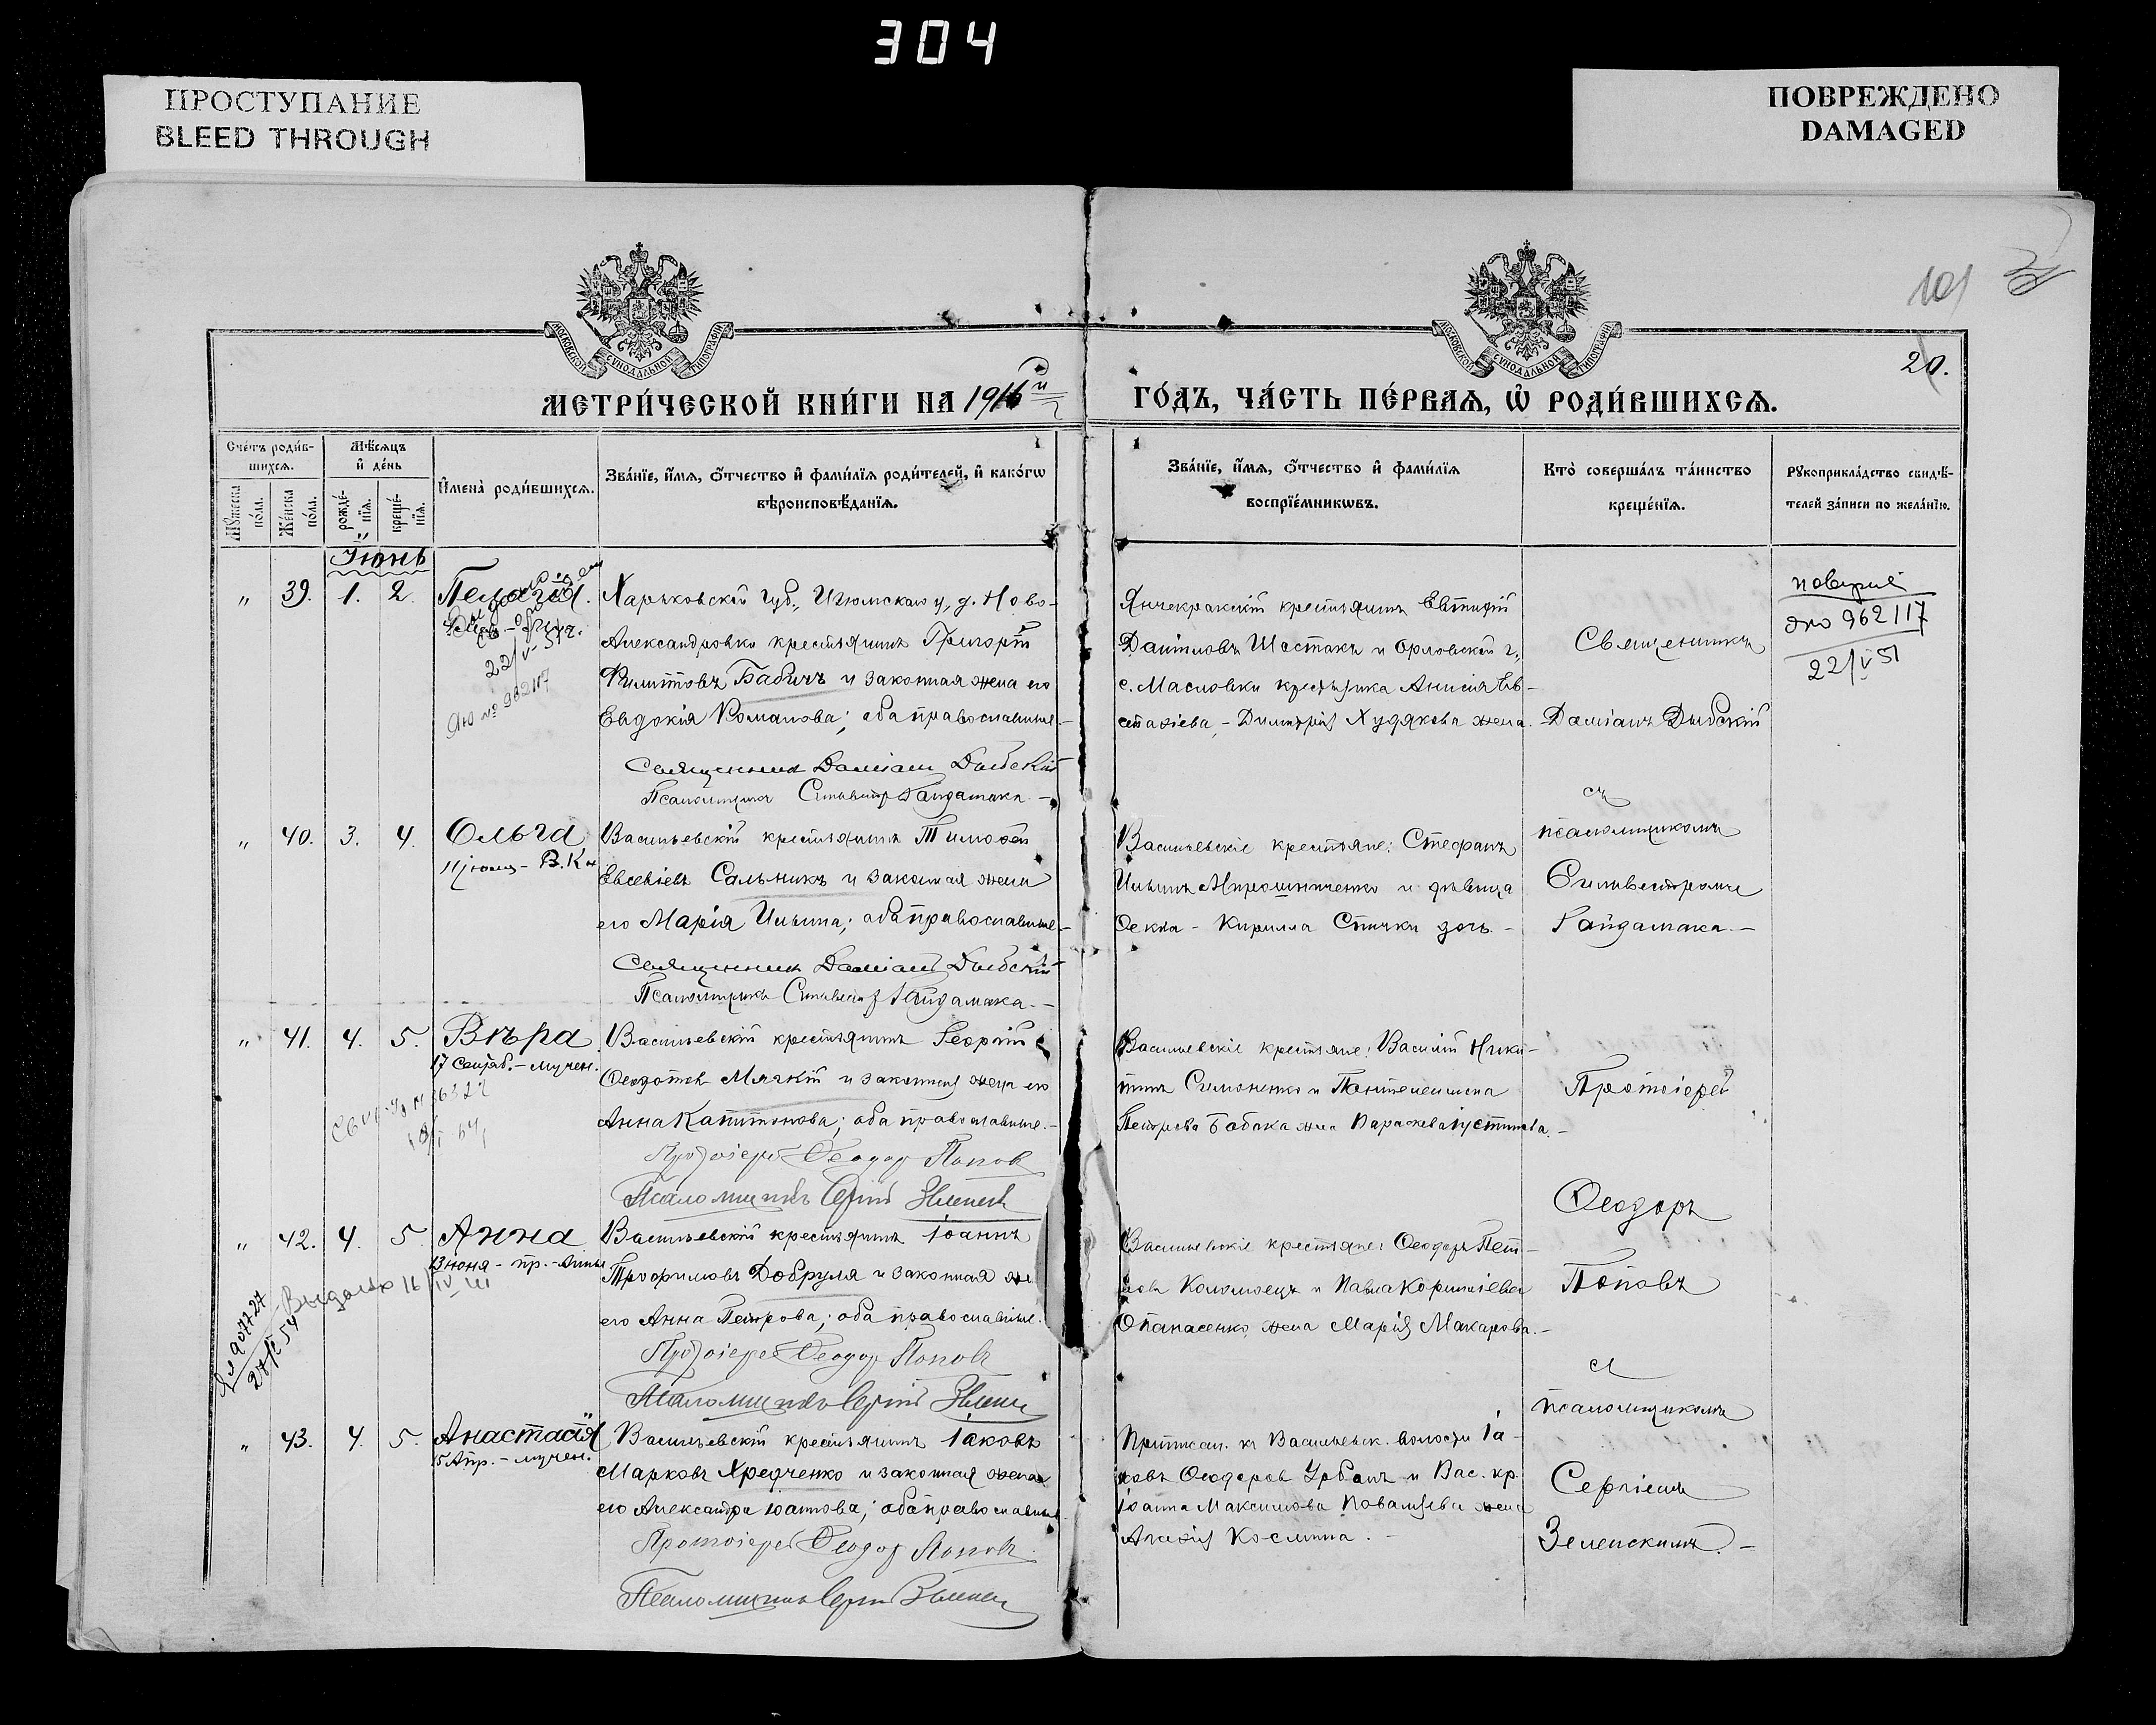 304
ПРОСТУПАНИЕ
BLEED THROUGH
ПОВРЕЖДЕНО
DAMAGED
101
20.
МОСКОВСКОЙ СѴНОДАЛЬНОЙ ТИПОГРАФІИ
МОСКОВСКОЙ СѴНОДАЛЬНОЙ ТИПОГРАФІИ
МЕТРИ́ЧЕСКОЙ КНИ́ГИ НА 1916й
ГО́ДЪ, ЧА́СТЬ ПЕ́РВАѦ, Ѽ РОДИ́ВШИХСѦ.
Сче́тъ роди́в-
шихсѧ.
Мѣ́сѧцъ
и҆ де́нь
Мꙋ́жеска по́ла.
Же́нска по́ла.
рожде́-нїѧ.
креще́-нїѧ.
И҆мена̀ роди́вшихсѧ.
Зва́нїе, и҆́мѧ, ѻ҆́тчество и҆ фами́лїѧ роди́телей, и҆ како́гѡ
вѣроисповѣ́данїѧ.
Зва́нїе, и҆́мѧ, ѻ҆́тчество и҆ фами́лїѧ
воспрїе́мникѡвъ.
Кто̀ соверша́лъ та́инство
креще́нїѧ.
Рꙋкоприкла́дство свидѣ́-
телей за́писи по жела́нїю.
Іюнь
" 39. 1. 2. Пелагія.
22/V-51г.
ЯЮ № 962117
Харьковской губ., Изюмскаго у, д. Ново-
Александровки крестьянинъ Григорій
Филипповъ Бабичъ и законная жена его
Евдокія Романова; оба православные.-
Священникъ Даміанъ Дыбскій
Псаломщикъ Сильвестръ Гайдамака.-
Янчекракскій крестьянинъ Евтихій
Даніиловъ Шостакъ и Орловской г.,
с. Масловки крестьянка Анисія Ев-
стафіева,- Димитрія Худякова жена.
Священникъ
Даміанъ Дыбскій
съ
псаломщикомъ
Сильвестромъ
Гайдамака.-
962117
22/V 51
" 40. 3. 4. Ольга
11 іюля - В. Кн.
Васильевскій крестьянинъ Тимоѳей
Евсевіевъ Сальникъ и законная жена
его Марія Ильина; оба православные.-
Священникъ Даміанъ Дыбскій
Псаломщикъ Сильвестръ Гайдамака.-
Васильевскіе крестьяне: Стефанъ
Ильинъ Мирошниченко и дѣвица
Ѳекла - Кирилла Спички дочь.-
" 41. 4. 5. Вѣра
17 Сентяб.- мучен.
Васильевскій крестьянинъ Георгій
Ѳеодотовъ Мягкій и законная жена его
Анна Капитонова; оба православные.-
Протоіерей Ѳеодор Попов
Псаломщикъ Сергій Зеленск
Васильевскіе крестьяне: Василій Ники-
тинъ Симоненко и Пантелеимона
Петрова Бабака жена Параскева Іустинова.-
Протоіерей
Ѳеодоръ
Поповъ
съ
псаломщикомъ
Сергіемъ
Зеленскимъ.-
" 42. 4. 5. Анна
13 іюня - пр.- Анны
Выдано 16/IV
907727
54
Васильевскій крестьянинъ Іоаннъ
Трофимовъ Добруля и законная же
его Анна Петрова; оба православные.
Протоіерей Ѳеодор Попов
Псаломщикъ Сергій Зелен
Васильевскіе крестьяне: Ѳеодоръ Пет-
ровъ Коломоецъ и Павла Корниліева
Опанасенко жена Марія Макарова.-
" 43. 4. 5. Анастасія
15 Апр. - мучен.
Васильевскій крестьянинъ Іаковъ
Марковъ Хредченко и законная жена
его Александра Іоаннова; оба православные
Протоіерей Ѳеодор Попов
Псаломщикъ Сергій Зелен
Приписан. къ Васильевск. волости Іа-
ковъ Ѳеодоровъ Урбанъ и Вас. кр.
Іоанна Максимова Повалyева жена
Агафія Космина.-